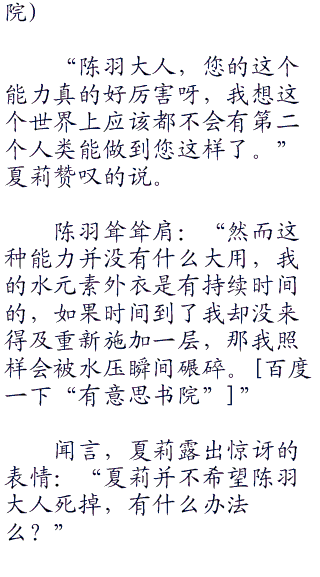 院)
“陈羽大人，您的这个
能力真的好厉害呀，我想这
个世界上应该都不会有第二
个人类能做到您这样了。”
夏莉赞叹的说。
陈羽耸耸肩：“然而这
种能力并没有什么大用，我
的水元素外衣是有持续时间
的，如果时间到了我却没来
得及重新施加一层，那我照
样会被水压瞬间碾碎。[百度
一下“有意思书院”]”
闻言，夏莉露出惊讶的
表情：“夏莉并不希望陈羽
大人死掉，有什么办法
么？”